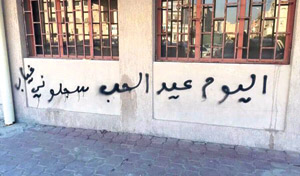 اليوم عيد الحب سجلوني غياب